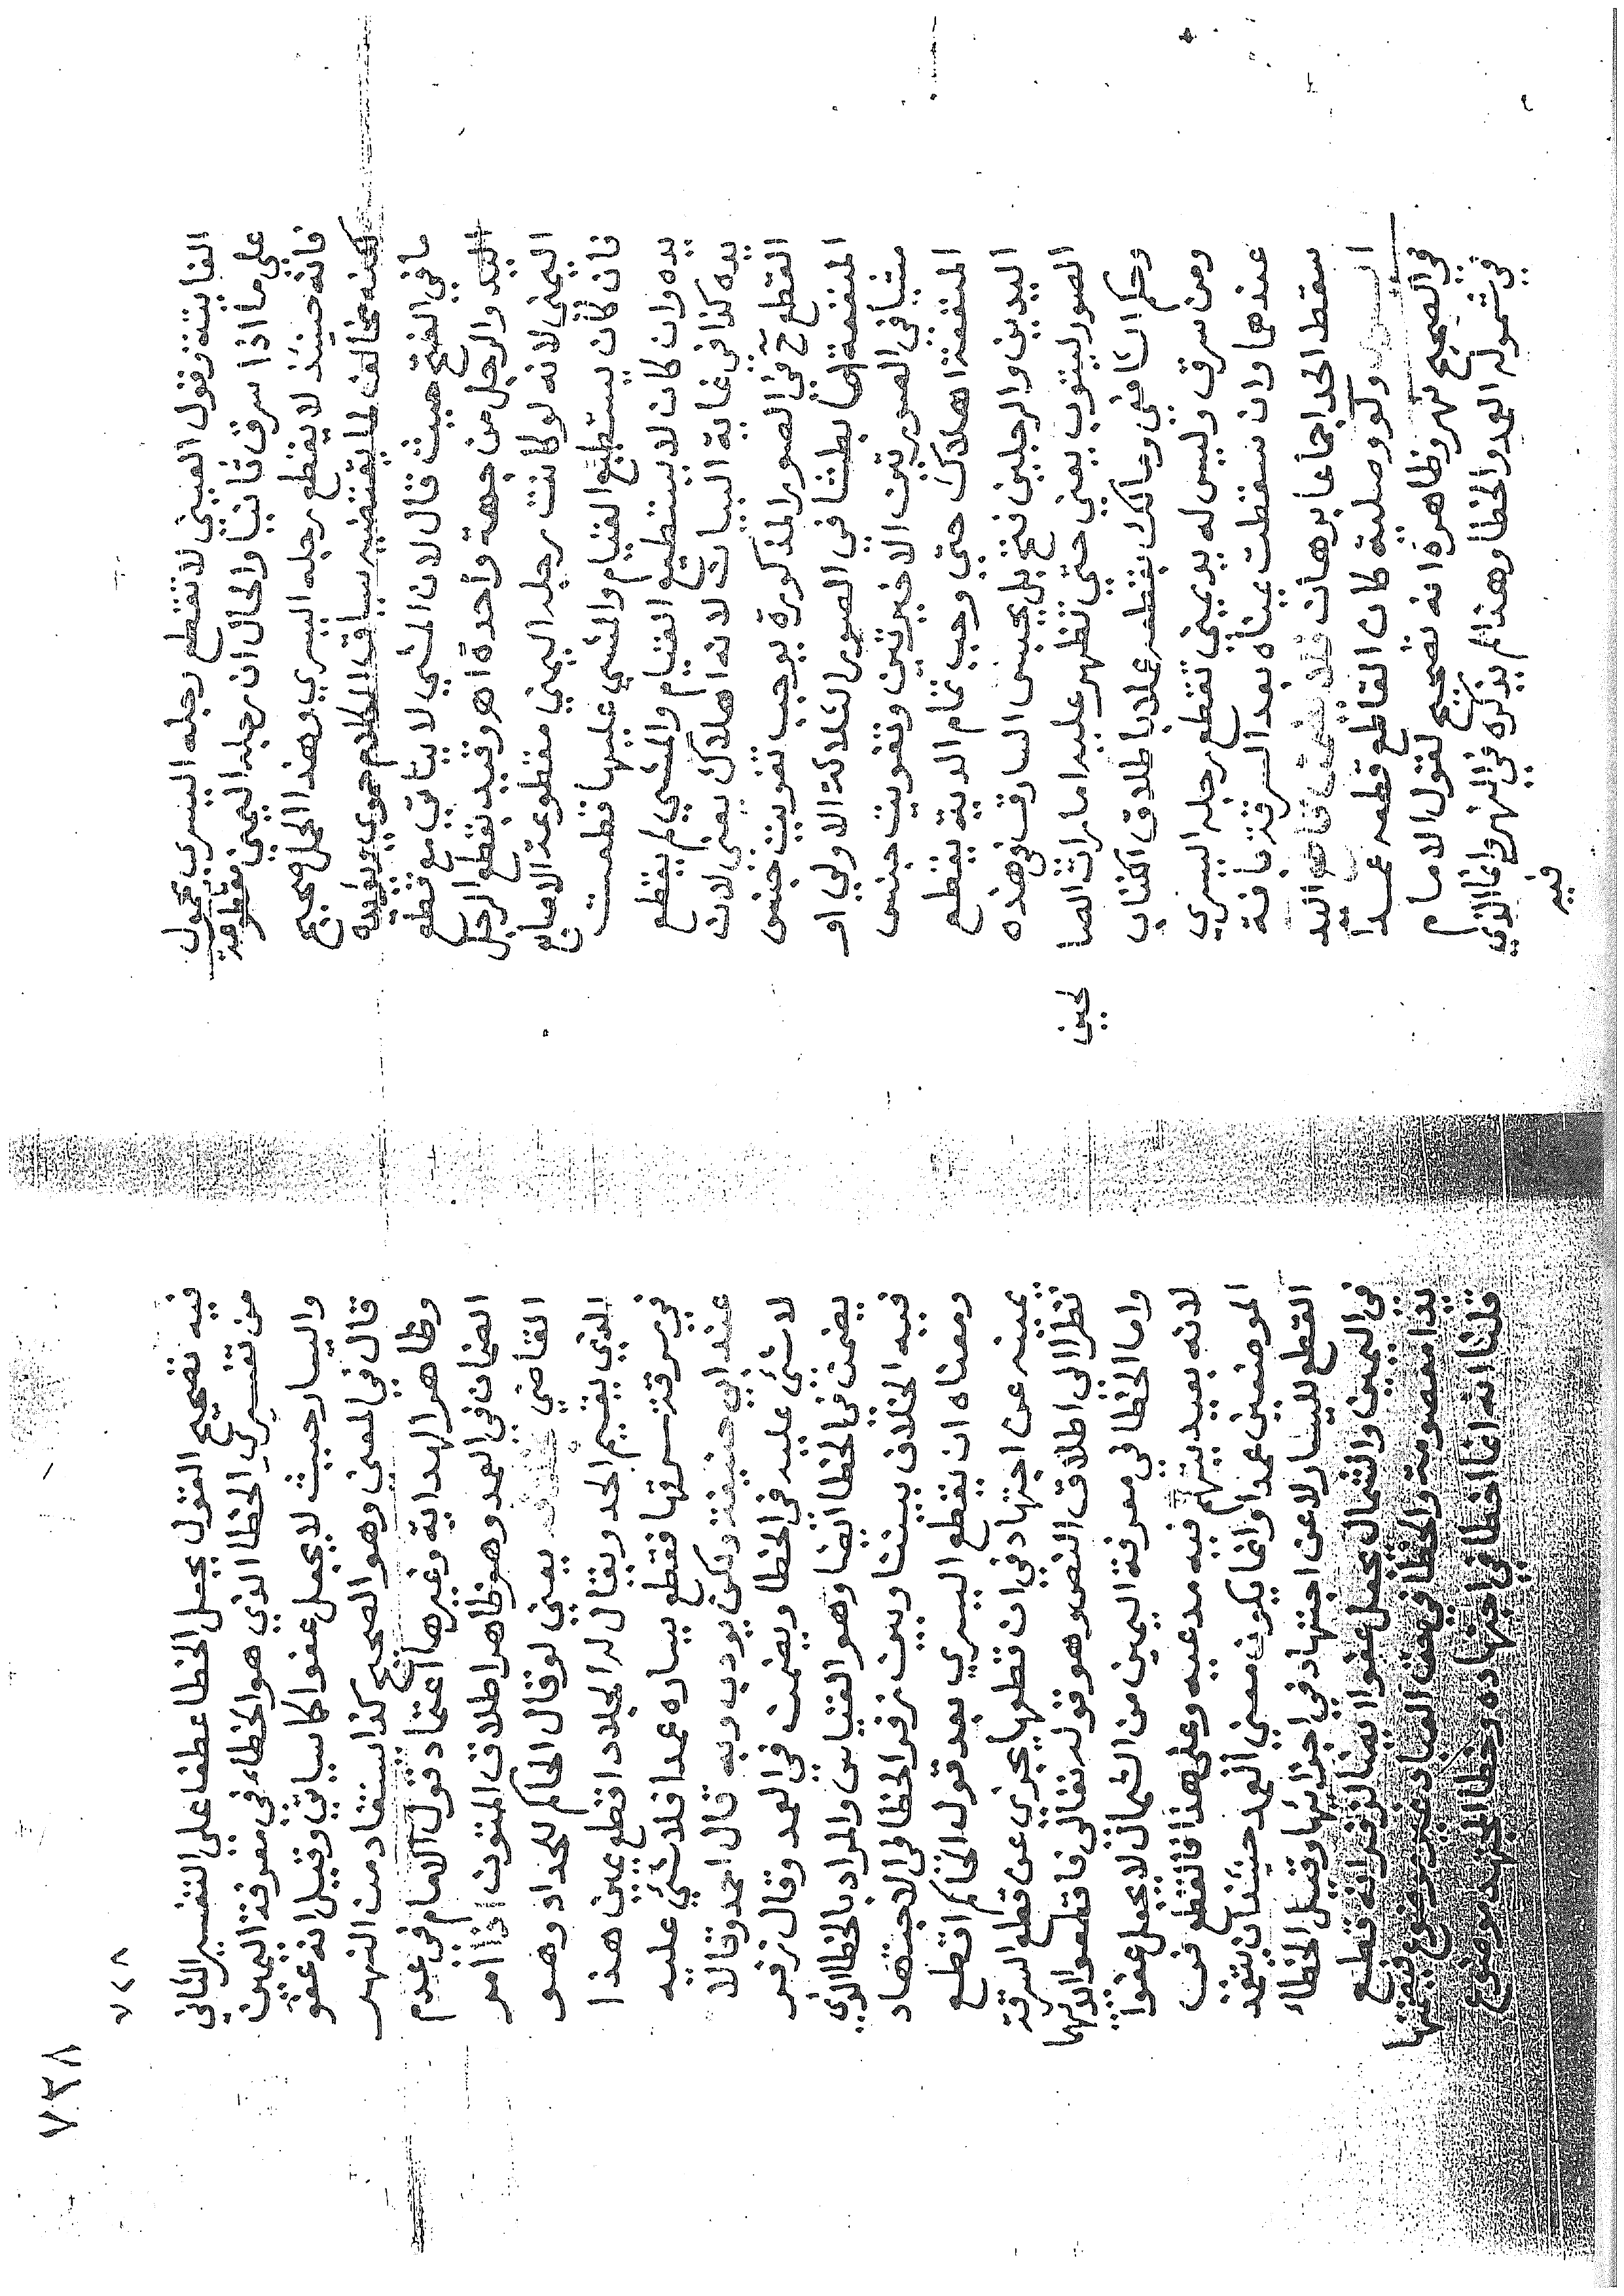 الفايتة وقول العيني لا تقطع رجله اليسرى محمول
على ما اذا سرق ثانيا والحال ان رجله اليمني مقطوعة
فانه حينئذ لا يقطع رجله اليسري وهذا الحمل صحيح
لكنه مخالف لما يقتضيه سياق الكلام حموي ويؤيده
ما في الفتح حيث قال لان المشي لا يتاتى مع قطع
اليد والرجل من جهة واحدة اهـ وقيد بقطع الرجل
اليمني لانه لو كانت رجله اليمني مقطوعة الاصابع
فان كان يستطيع القيام والمشي عليها قطعت
يده وان كان لا يستطيع القيام والمشي لم يقطع
يده كذا في غاية البيان لانه اهلاك يعني لان
القطع ح في الصور المذكورة يوجب تفويت جنس
المنفعة اما بطشا في الصور الثلاثة الاولي او
مشيا في الصورتين الاخيرتين وتفويت جنس
المنفعة اهلاك حتي وجب تمام الدية بقطع
اليدين والرجلين فتح بل يحبس السارق في هذه
الصور ليتوب يعني حتي تظهر عليه امارات الصا
لحين
وحكم الشافعي ومالك بقطعه عملا باطلاق الكتاب
ومن سرق وليس له يد يمني تقطع رجله اليسري
عندهما وان سقطت يمناه بعد السرقة بافة
سقط الحد اجماعا برهان
اليسرى ولو وصلية كان القاطع قطعه عمدا
في الصحيح نهر وظاهره انه تصحيح لقول الامام
في شموله العمد والخطا وهذا لم يذكره في النهر وانما الذي
فيه
٧٣٨
٧٢٨
فيه تصحيح القول بجعل الخطا عطفا علي التفسير الثاني
من تفسيري الخطا الذي هو الخطاء في معرفة اليمين
واليسار حيث لا يجعل عفوا كما سياتي وقيل انه عفو
قال في المصفي وهو الصحيح كذا يستفاد من النهر
وظاهر الهداية وغيرها اعتماد قول الامام في عدم
الضمان في العمد وهو ظاهر اطلاق المتون اذا امر
القاضي بخلافه يعني لو قال الحاكم للحداد وهو
الذي يقيم الحد ويقال له الجلاد اقطع يمين هذا
في سرقة سرقها فقطع يساره عمدا فلا شيء عليه
عند ابي حنيفة ولكن يؤدب وبه قال احمد وقالا
لا شيء عليه في الخطا ويضمن في العمد وقال زفر
يضمن في الخطا ايضا وهو القياس والمراد بالخطا الذي
فيه الخلاف بيننا وبين زفر الخطا في الاجتهاد
ومعناه ان يقطع اليسري بعد قول الحاكم اقطع
يمينه عن اجتهاد في ان قطعها يجزي عن قطع السرقة
نظرا الى اطلاق النص وهو قوله تعالى فاقطعوا ايديهما
واما الخطا في معرفة اليمين من الشمال لا يجعل عفوا
لانه بعيد يتهم فيه مدعيه وعلى هذا فالقطع في
الموضعين عمدا وانما يكون معني العمد حينئذ ان يتعمد
القطع لليسار لا عن اجتهاد في اجزائها وقيل الخطاء
في اليمين والشمال يجعل عفوا ايضا لزفر انه قطع
يدا معصومة والخطا في حق العباد غير موضوع فيضمنها
قلنا انه انما اخطا في اجتهاده وخطا المجتهد موضوع